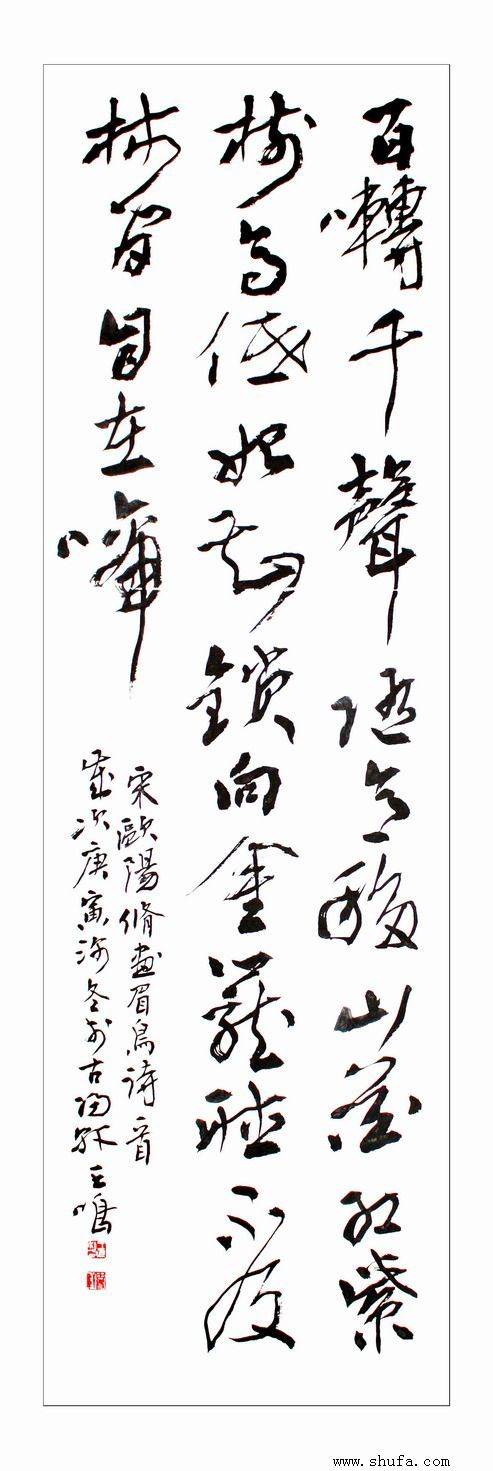 百囀千聲隨意移山花紅紫
樹高低始知鎖向金籠聽不及
林間自在啼
宋歐陽脩畫眉鳥詩首
歲次庚寅初冬於古王鳴
www.shufa.com